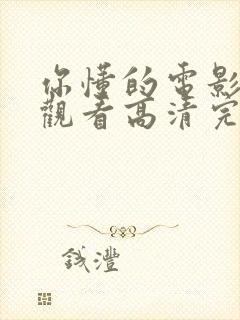 你懂的電影
觀看高清完
錢灃